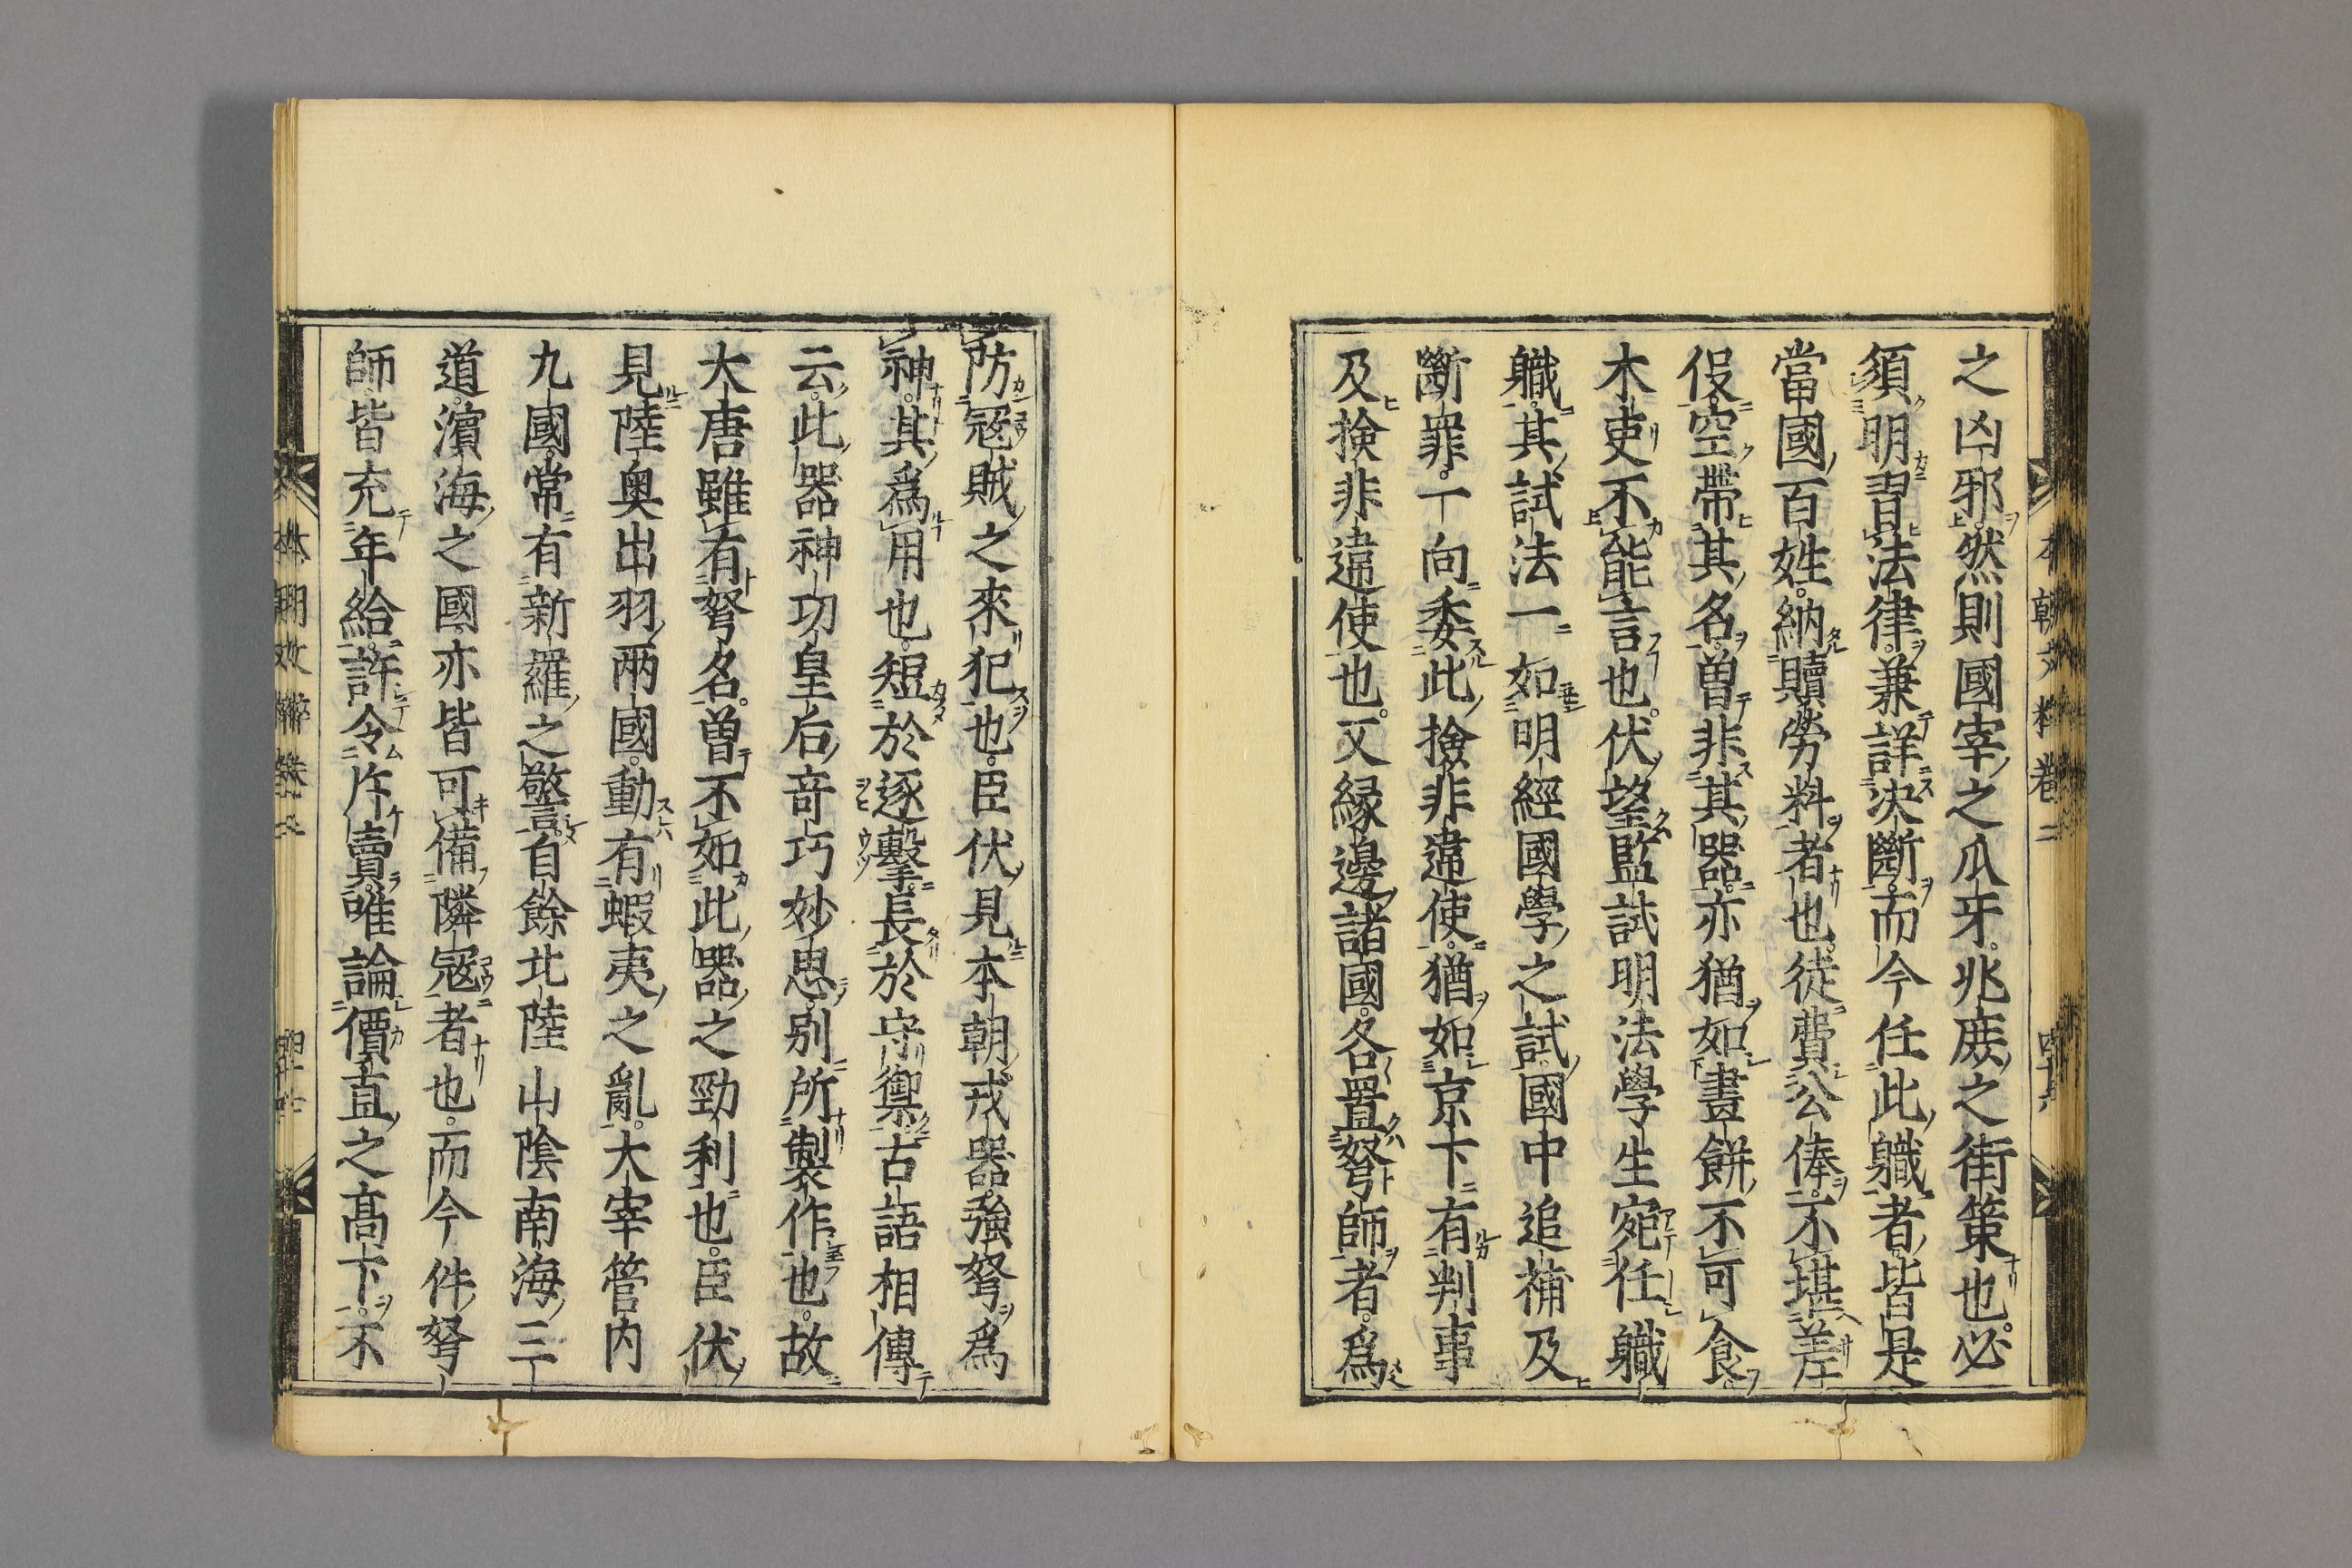 之凶邪然則國宰之爪牙兆庻之街策也必
須明習法律兼詳决斷而今任此軄者皆是
當國百姓納贖勞料者也徒費公俸不堪差
役空帶其名曽非其器亦猶如畫餅不可食
木吏不能言也伏望監試明法学生宛任軄
軄其試法一如明經國學之試國中追補及
斷罪一向委此撿非違使猶如京下有判事
及撿非違使也又縁邊諸國各置弩師者爲
防冦賊之來犯也臣伏見本朝戎器強弩爲
神其爲用也短於逐擊長於守禦古語相傳
云此器神功皇后竒巧妙思別所製作也故
大唐雖有弩名曽不如此器之勁利也臣伏
見陸奥出羽兩國動有蝦夷之亂大宰管内
九國常有新羅之警自餘北陸山陰南海三
道濵海之國亦皆可備隣冦者也而今件弩
師皆充年給許令斥賣唯論價直之高下不